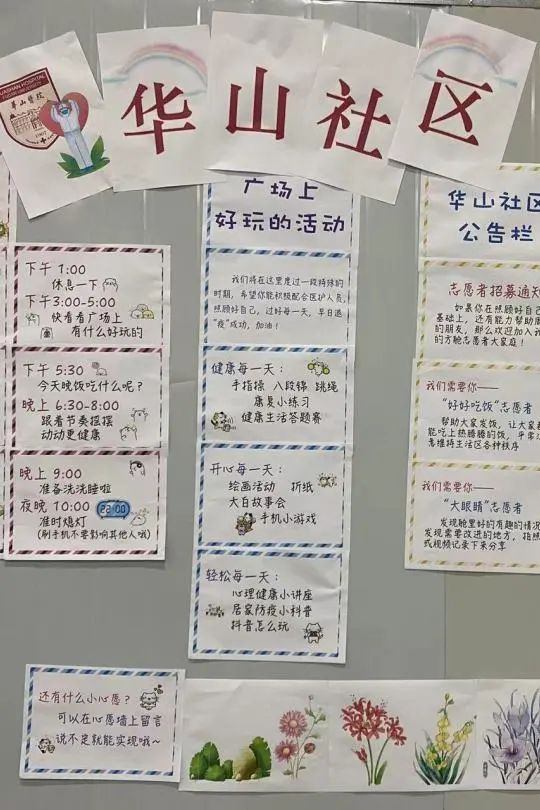 HUASHAN HOSPITAL
華山醫院
1907
华山社区
下午 1:00
休息一下
下午3:00-5:00
快看看广场上
有什么好玩的
下午 5:30
今天晚饭吃什么呢?
晚上 6:30-8:00
跟着节奏摇摆
动动更健康
晚上 9:00
准备洗洗睡啦
夜晚 10:00
22:00
准时熄灯
(刷手机不要影响其他人哦)
广场上
好玩的活动
我们将在这里度过一段特殊的
时期,希望你能积极配合医护人员,
照顾好自己,过好每一天,早日退
“疫”成功,加油!
健康每一天:
手指操 八段锦 跳绳
康复小练习
健康生活答题赛
开心每一天:
绘画活动 折纸
大白故事会
手机小游戏
轻松每一天:
心理健康小讲座
居家防疫小科普
抖音怎么玩
华山社区
公告栏
志愿者招募通知
如果你在照顾好自己
基础上,还有能力帮助周
的朋友,那么欢迎加入我
的方舱志愿者大家庭!
我们需要你——
“好好吃饭”志愿者
帮助大家发饭,让大家都
能吃上热腾腾的饭,平常注
意维持生活区各种秩序
我们需要你——
“大眼睛”志愿者
发现舱里好的有趣的情况
发现需要改进的地方,拍照
或视频记录下来分享
还有什么小心愿?
可以在心愿墙上留言
说不定就能实现哦~